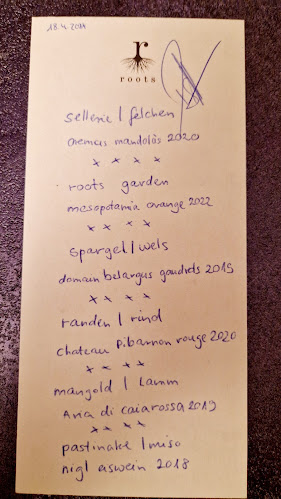 18.4.2024
r
roots
sellerie / felchen
oremus mandolàs 2020
x x x x
roots garden
mesopotamia orange 2022
x x x x
spargel / wels
domain belargus gaudrets 2019
x x x x
randen / rind
chateau pibarnon rouge 2020
x x x x
mangold / lamm
Aria di caiarossa 2019
x x x x
pastinake / miso
nigl eiswein 2018